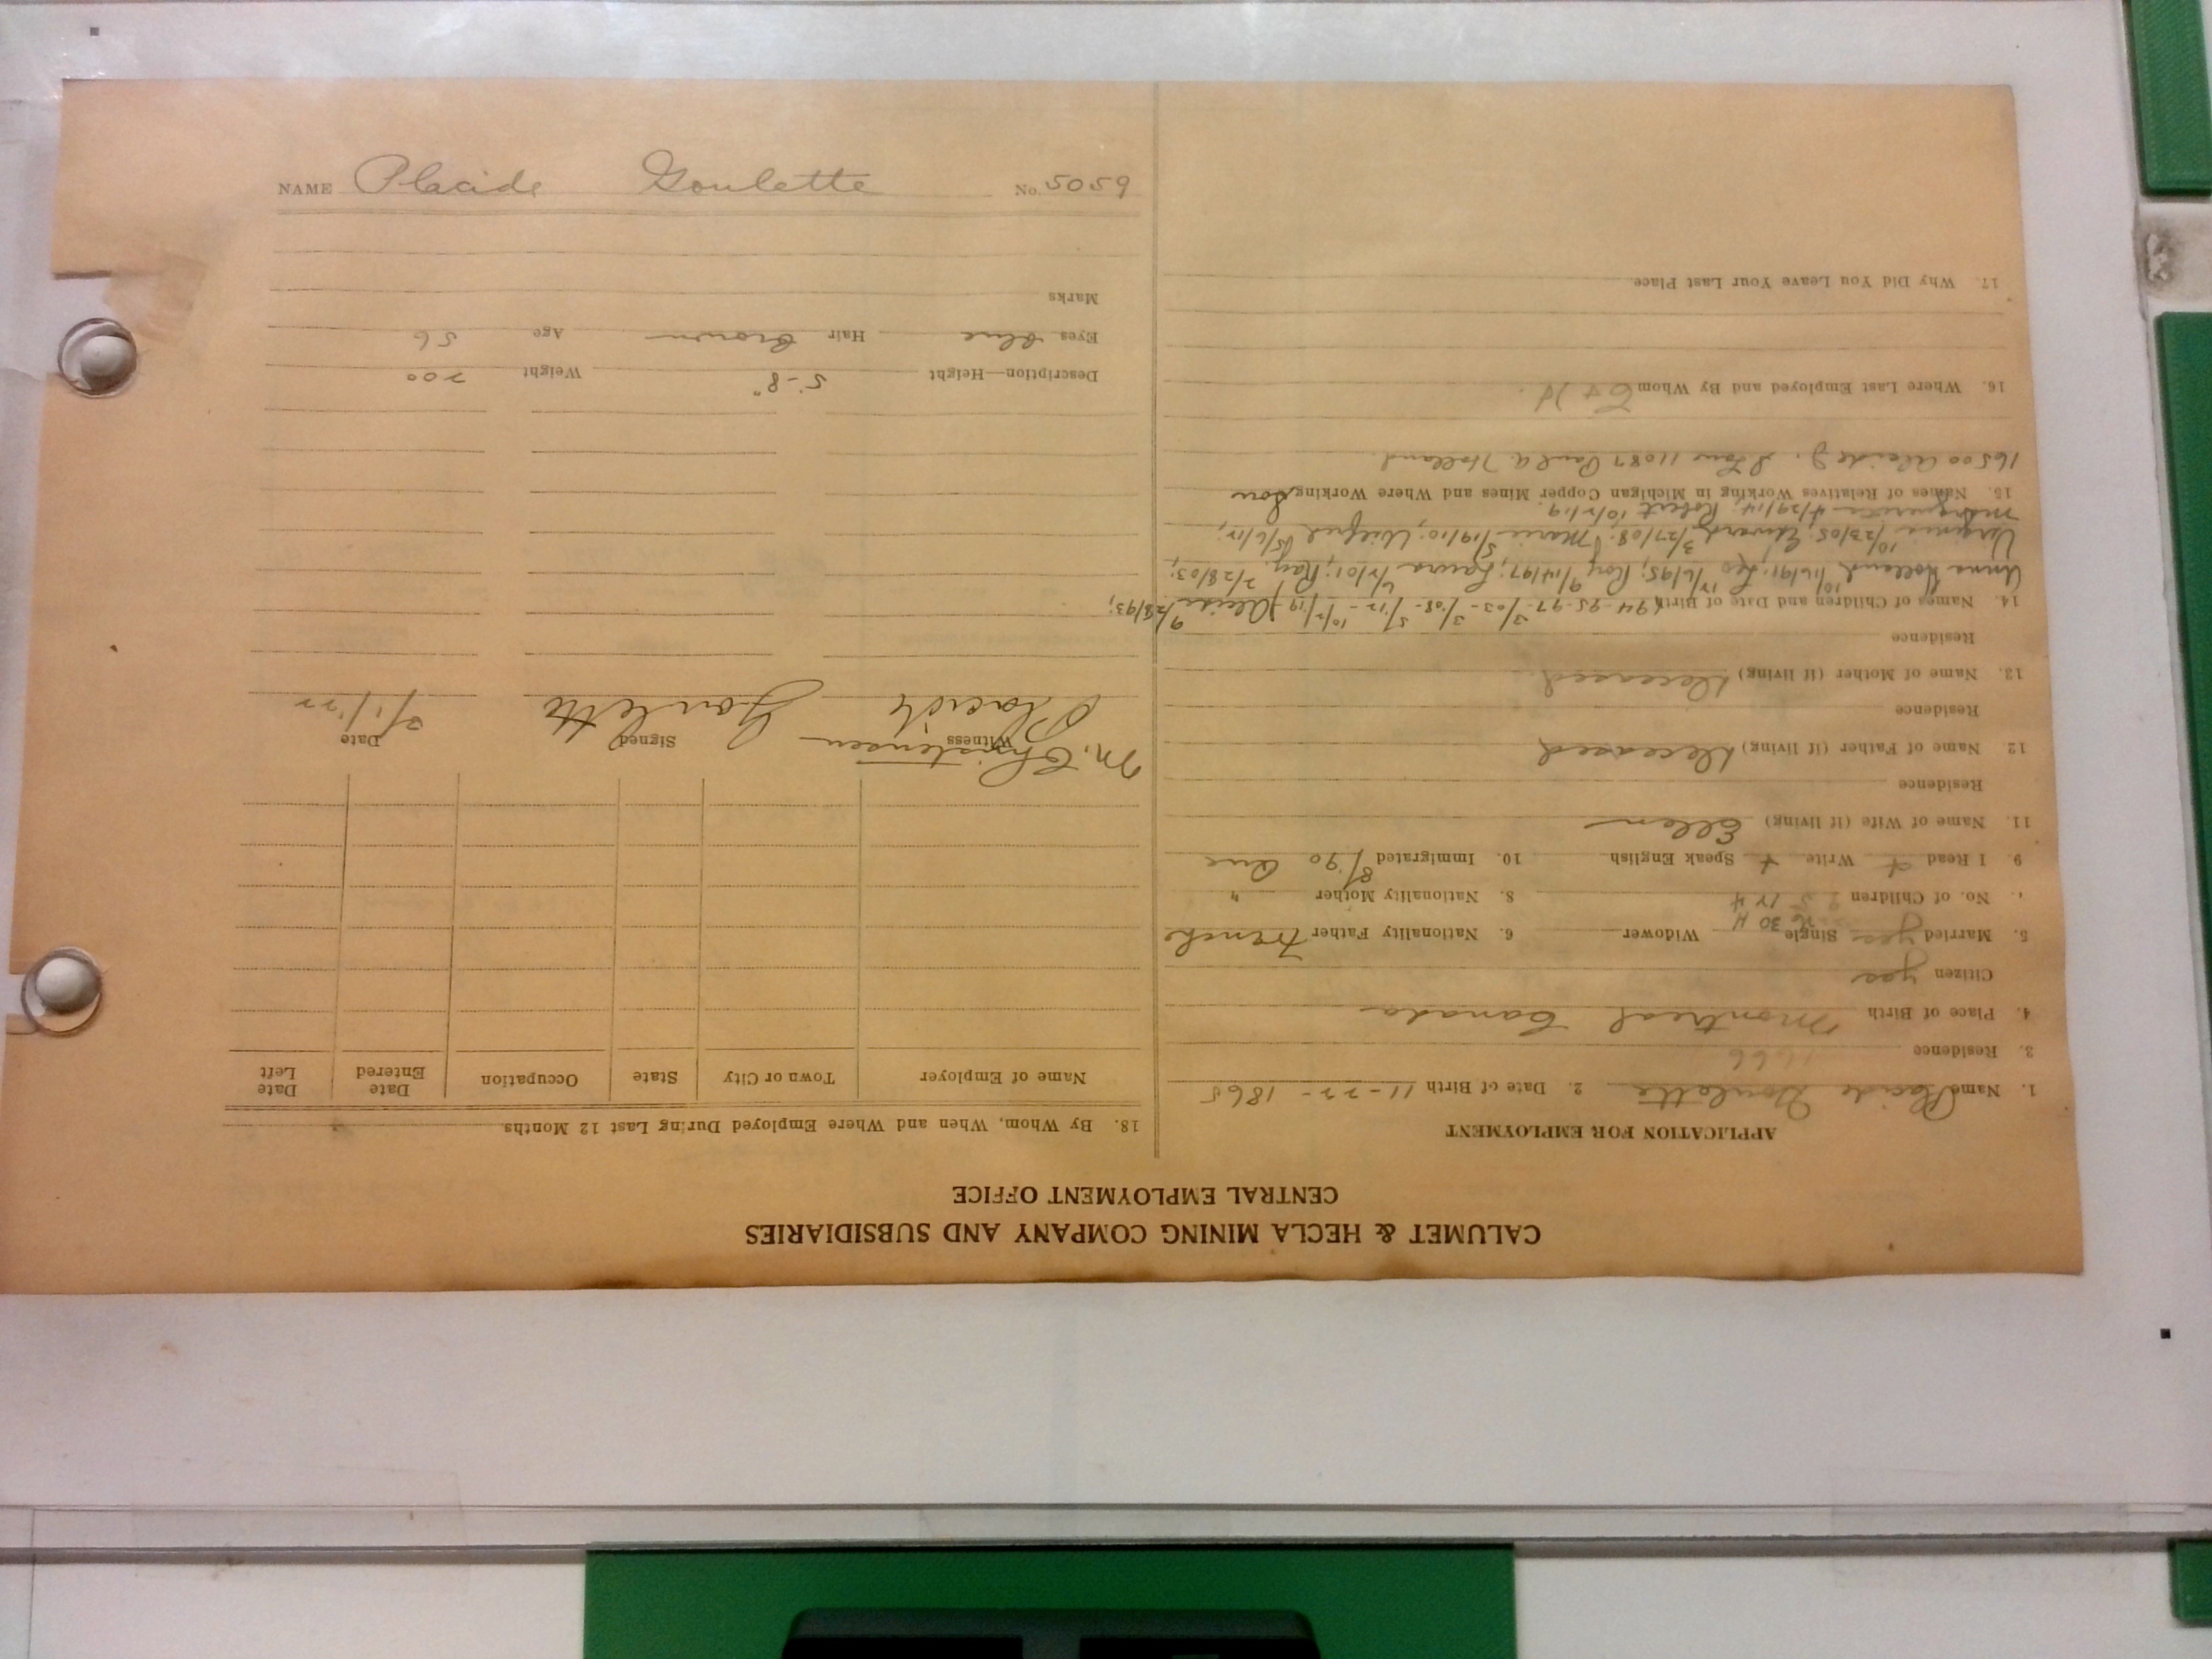 NAME Placide Goulette No. 5059
CALUMET & HECLA MINING COMPANY AND SUBSIDIARIES
CENTRAL EMPLOYMENT OFFICE
APPLICATION FOR EMPLOYMENT
1. Name Placide Goulette 2. Date of Birth 11-22-1865
3. Residence 1666
4. Place of Birth Montreal Canada
Citizen yes
5. Married yes Single Widower 6. Nationality Father French
No. of Children 8. Nationality Mother "
9. I Read + Write + Speak English 10. Immigrated 8/90
11. Name of Wife (if living) Ellen
Residence
12. Name of Father (if living) Deceased
Residence
13. Name of Mother (if living) Deceased
Residence
14. Names of Children and Date of Birth (94-95-97-3/03-3/08-5/12-10/2/19) 9/28/93;
Anna Holland 10/16/91; Leo 12/6/95; Roy 9/14/97; Laura 6/2/01; Ray. 2/28/03;
Virginia 10/23/05; Edward 3/27/08; Marie 5/19/10; Wilfred 5/6/12;
Marguerite 4/29/14; Robert 10/2/19.
15. Names of Relatives Working in Michigan Copper Mines and Where Working Son
16500 J. 11087 Paul A. Holland
16. Where Last Employed and By Whom C + H.
17. Why Did You Leave Your Last Place
18. By Whom, When and Where Employed During Last 12 Months
Name of Employer Town or City State Occupation Date Entered Date Left
M. Christensen
Witness Signed Date
Placide Goulette 3/1/22
Description—Height 5'-8" Weight 200
Eyes blue Hair Brown Age 56
Marks